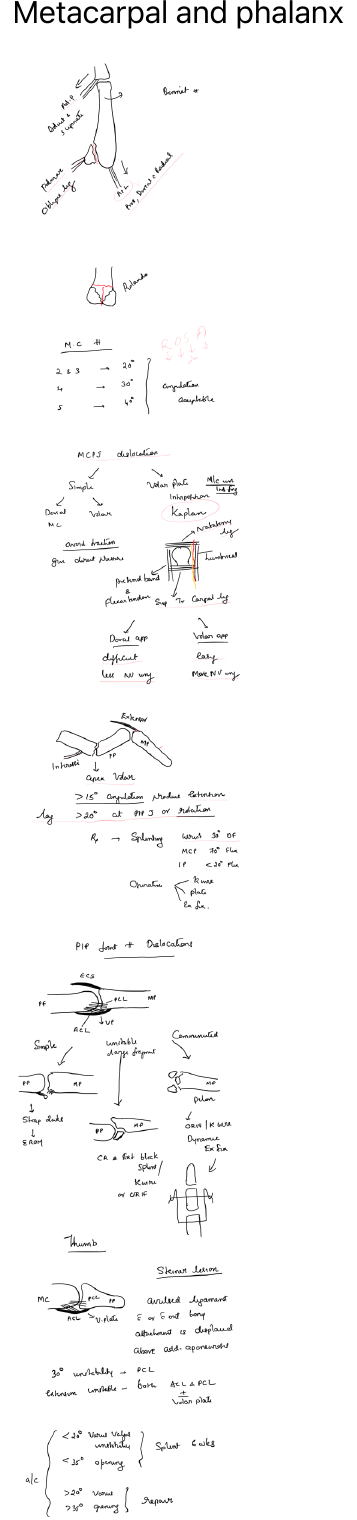 Metacarpal and phalanx
Bennet #
Add P
Palmar
Oblique lig
APL
Prox, Dorsal & Radial
Rolando
M.C #
2 & 3 → 20°
4 → 30°
5 → 40°
angulation
acceptable
MCPJ dislocation
Simple
Volar plate
Interposition
Kaplan
Dorsal
MC
Volar
avoid traction
give direct pressure
Natatory
lig
Lumbrical
Pretend band
&
Flexor tendon
Sup Tr Carpal lig
Dorsal app
difficult
less NV inj
Volar app
Easy
More NV inj
Extensor
Interossei
PP
MP
apex Volar
>15° angulation produce Extention
lag
>20° at PIPJ or rotation
Rx → Splinting
Wrist 30° DF
MCP 70° Flex
IP <20° Flex
Operative
K wire
plate
Ex fix.
PIP Joint # Dislocations
ECS
PP
MP
PCL
ACL
VP
Simple
unstable
large fragment
Communuted
PP
MP
PP
MP
MP
pilon
Strap
↓
EROM
CR & Ext block
Splint/
K wire
or ORIF
ORIF/K wire
Dynamic
Ex fix
Thumb
Stenar lesion
MC
PCL
PP
ACL
V. Plate
avulsed ligament
c̄ or c̄ out bony
attachment is displaced
above add. aponeurosis
30° unstability – PCL
Extension unstable – Both ACL & PCL
+
Volar plate
a/c
<20° Varus Valgus
unstability
<35° opening
Splint 6 wks
>20° varus
>35° opening
Repair